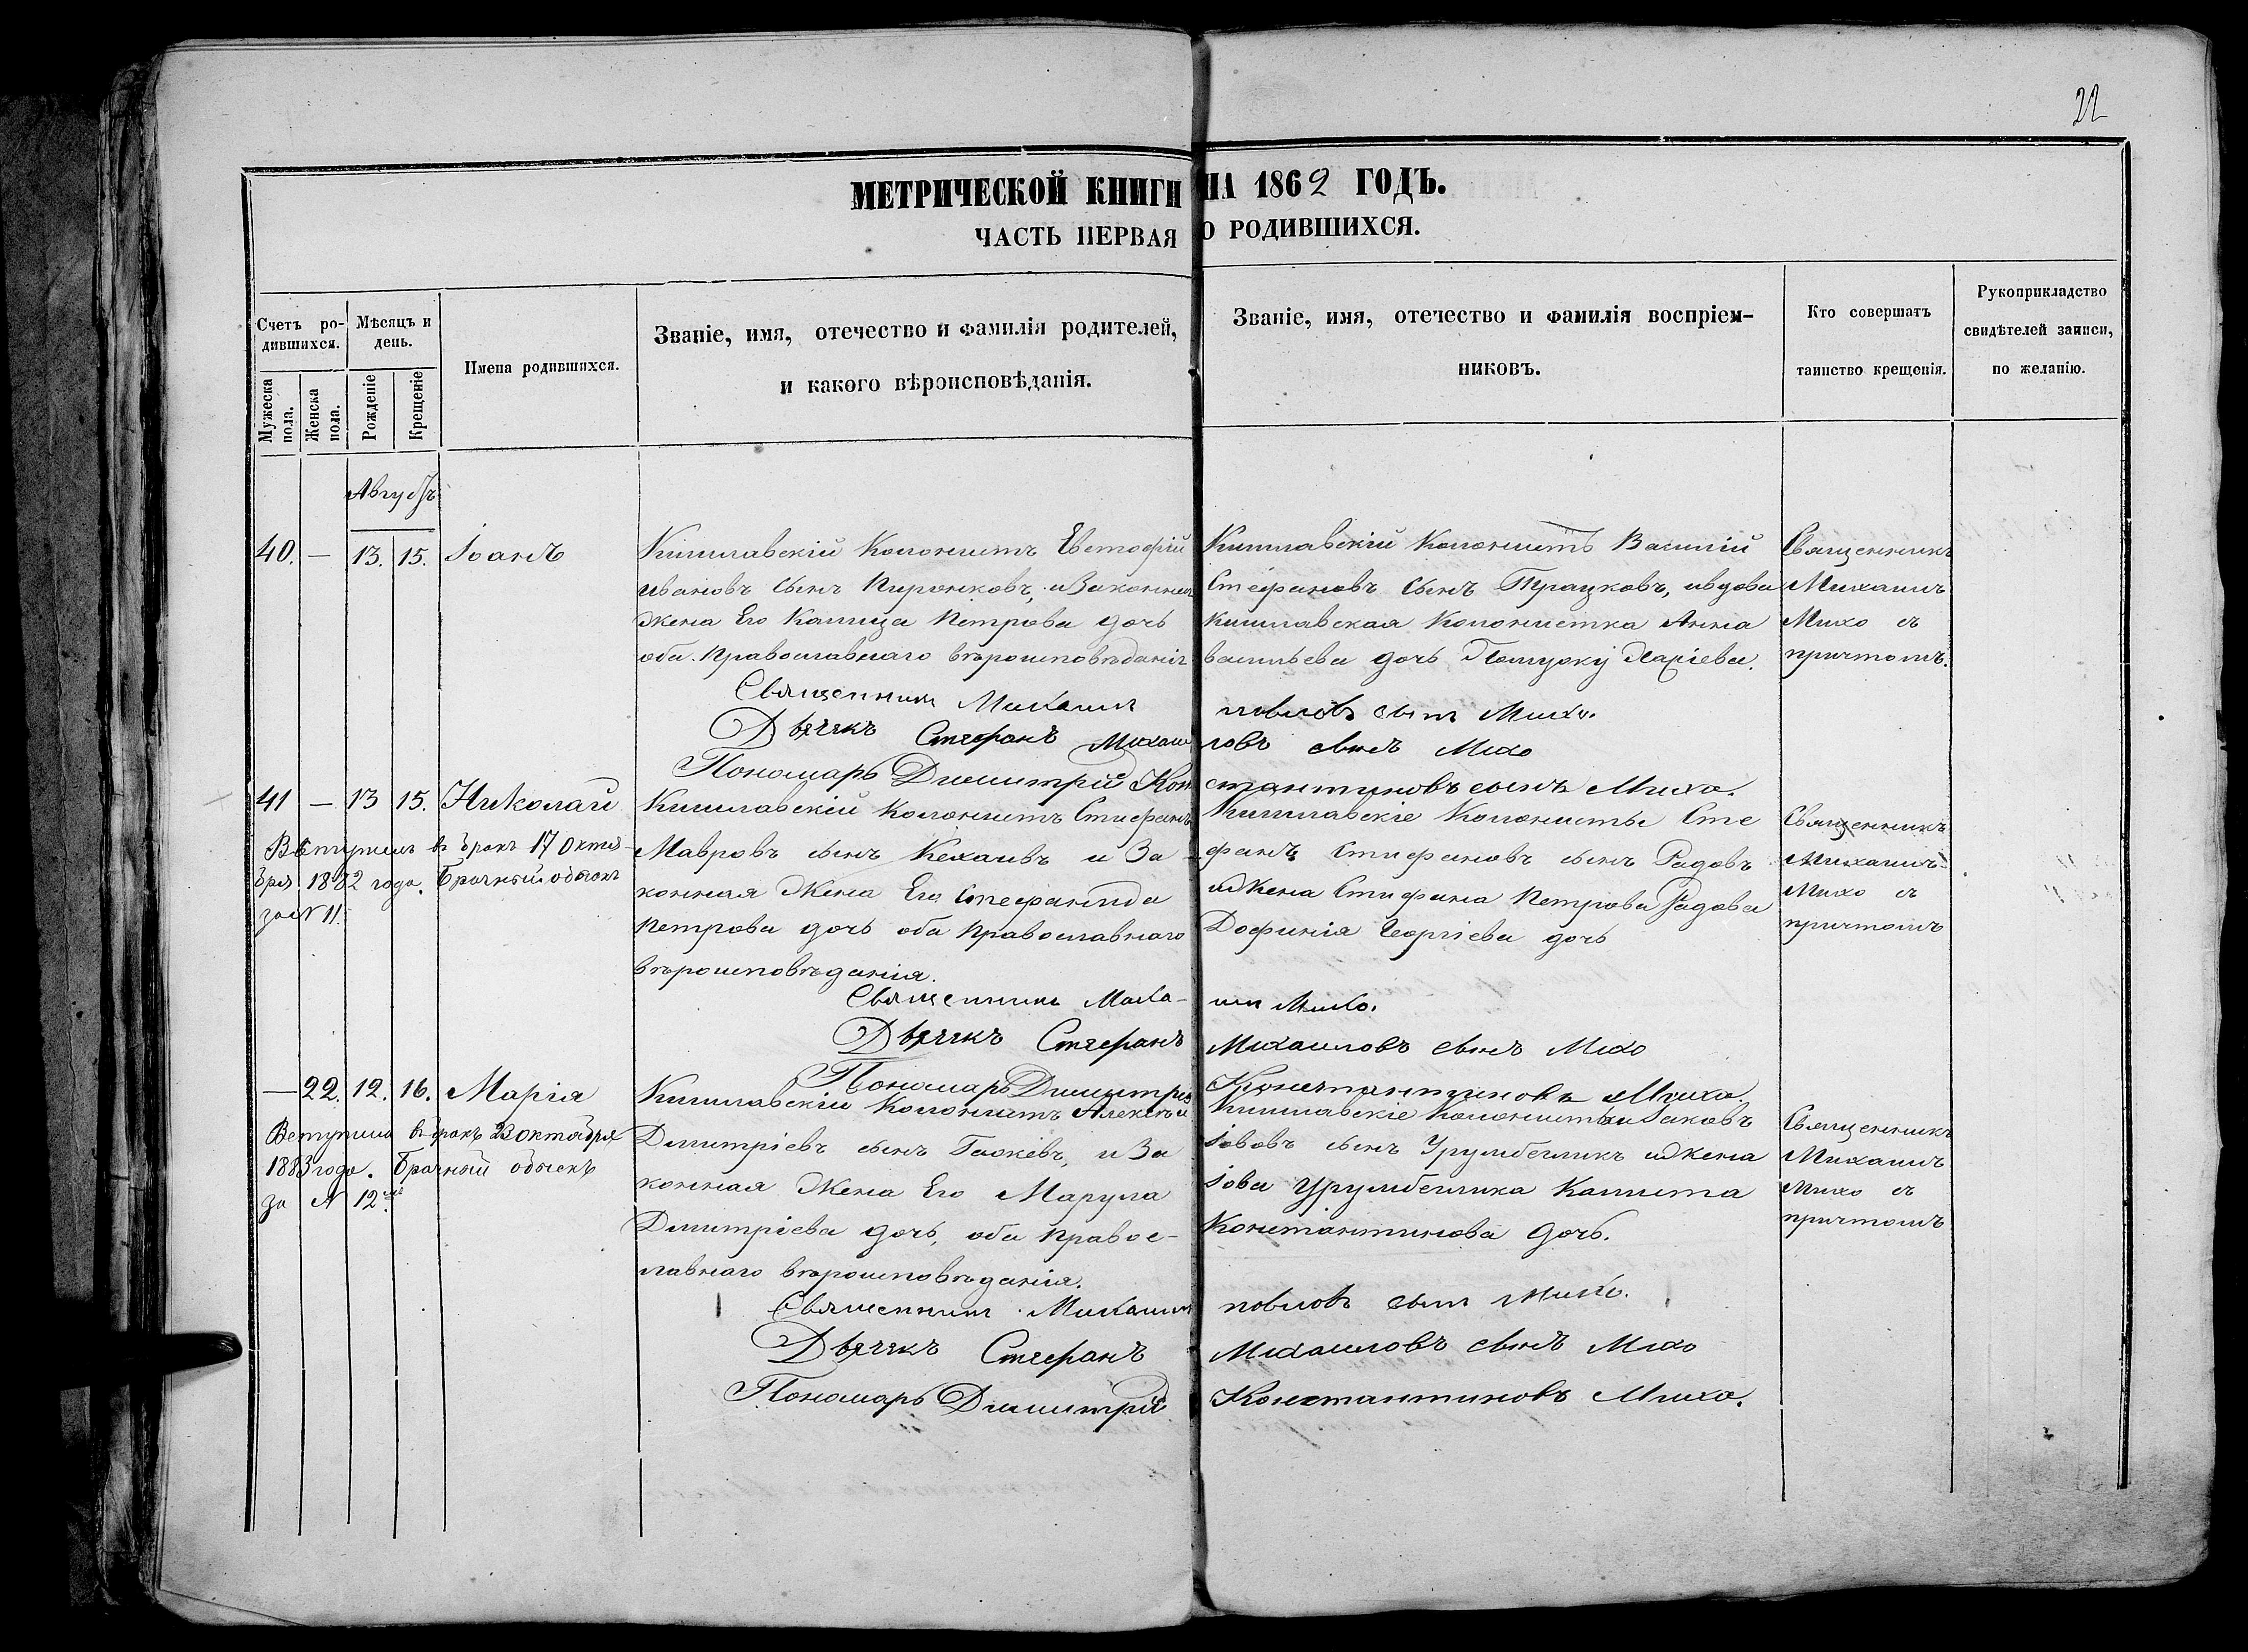 22
МЕТРИЧЕСКОЙ КНИГИ НА 1862 ГОДЪ.
ЧАСТЬ ПЕРВАЯ О РОДИВШИХСЯ.
Счетъ ро-
дившихся.
Мужеска пола.
Женска пола.
Мѣсяцъ и
день.
Рожденіе
Крещеніе
Имена родившихся.
Званіе, имя, отечество и фамилія родителей,
и какого вѣроисповѣданія.
Званіе, имя, отечество и фамилія воспріем-
никовъ.
Кто совершатъ
таинство крещенія.
Рукоприкладство
свидѣтелей записи,
по желанію.
Августъ
40. — 13. 15. Іоанъ
Кишлавскій Колонистъ
Ивановъ сынъ Пиронковъ, и Законная
жена Его Калица Петрова дочь
оба Православнаго вѣроисповѣданія
Кишлавскій Колонистъ Василій
Стефановъ сынъ Трацковъ, и вдова
Кишлавская Колонистка Анна
Васильева дочь
Священникъ
Михаилъ
Михо съ
причтомъ.
Священникъ Михаилъ Павловъ сынъ Михо.
Дьячекъ Стефанъ Михаиловъ сынъ Михо
Пономарь Димитрій Константиновъ сынъ Михо.
41 — 13 15. Николай
Вступилъ въ бракъ 17 Октя-
бря 1882 года. Брачный обыскъ
за N 11.
Кишлавскій Колонистъ Стефанъ
Мавровъ сынъ и За-
конная Жена Его Стефанида
Петрова дочь оба Православнаго
вѣроисповѣданія.
Кишлавскіе Колонисты Сте
фанъ Стефановъ сынъ Радовъ
и Жена Стефана Петрова Радова
Дофинія Георгіева дочь
Священникъ
Михаилъ
Михо съ
причтомъ
Священникъ Михаилъ Михо.
Дьячекъ Стефанъ Михаиловъ сынъ Михо
Пономарь Димитрій Константиновъ Михо.
— 22. 12. 16. Марія
Вступила въ бракъ 23 октября
1883 года. Брачный обыскъ
за N 12
Кишлавскій Колонистъ Алексѣй
Димитріевъ сынъ и За
конная Жена Его Марула
Димитріева дочь, оба Правос-
лавнаго вѣроисповѣданія.
Кишлавскіе Колонисты Іаковъ
Іововъ сынъ Урумбегликъ и Жена
Іова Урумбеглика Калита
Константинова дочь.
Священникъ
Михаилъ
Михо съ
причтомъ
Священникъ Михаилъ Павловъ сынъ Михо.
Дьячекъ Стефанъ Михаиловъ сынъ Михо
Пономарь Димитрій Константиновъ Михо.